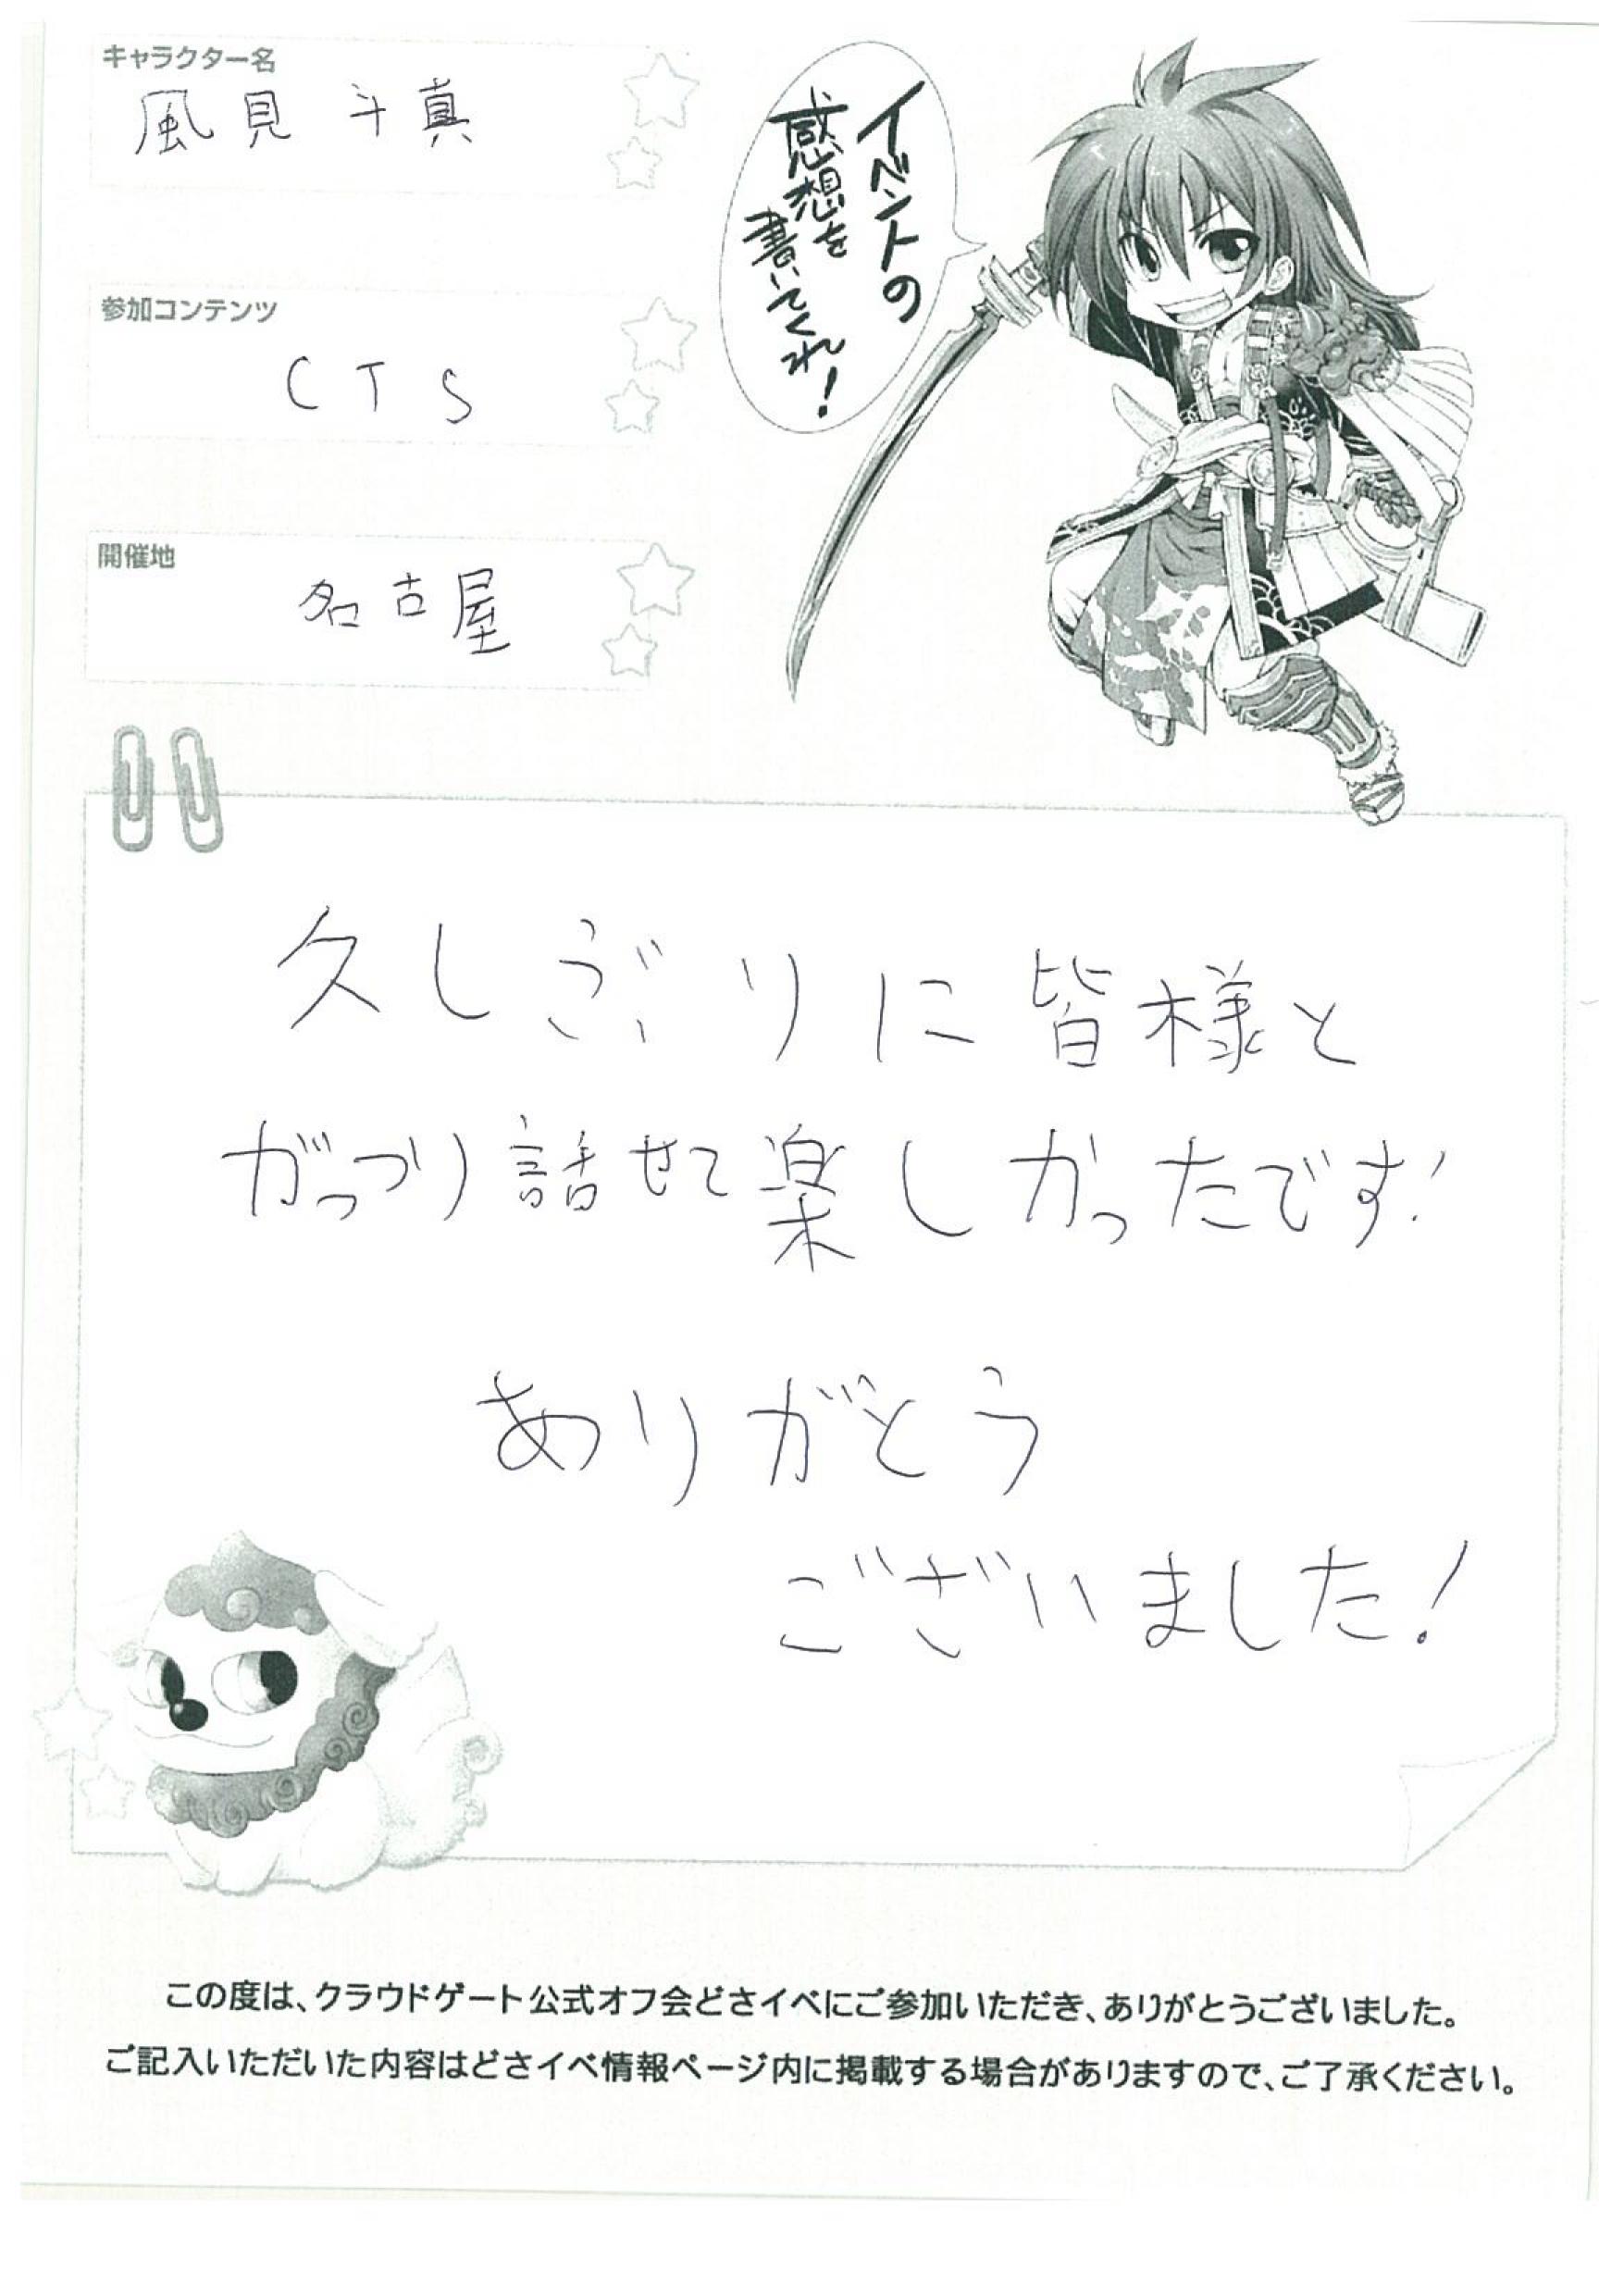 キャラクター名
風見 斗真
参加コンテンツ
CTS
開催地
名古屋
イベントの
感想を
書いてくれ!
久しぶりに皆様と
がっつり話せて楽しかったです!
ありがとう
ございました!
この度は、クラウドゲート公式オフ会どさイベにご参加いただき、ありがとうございました。
ご記入いただいた内容はどさイベ情報ページ内に掲載する場合がありますので、ご了承ください。